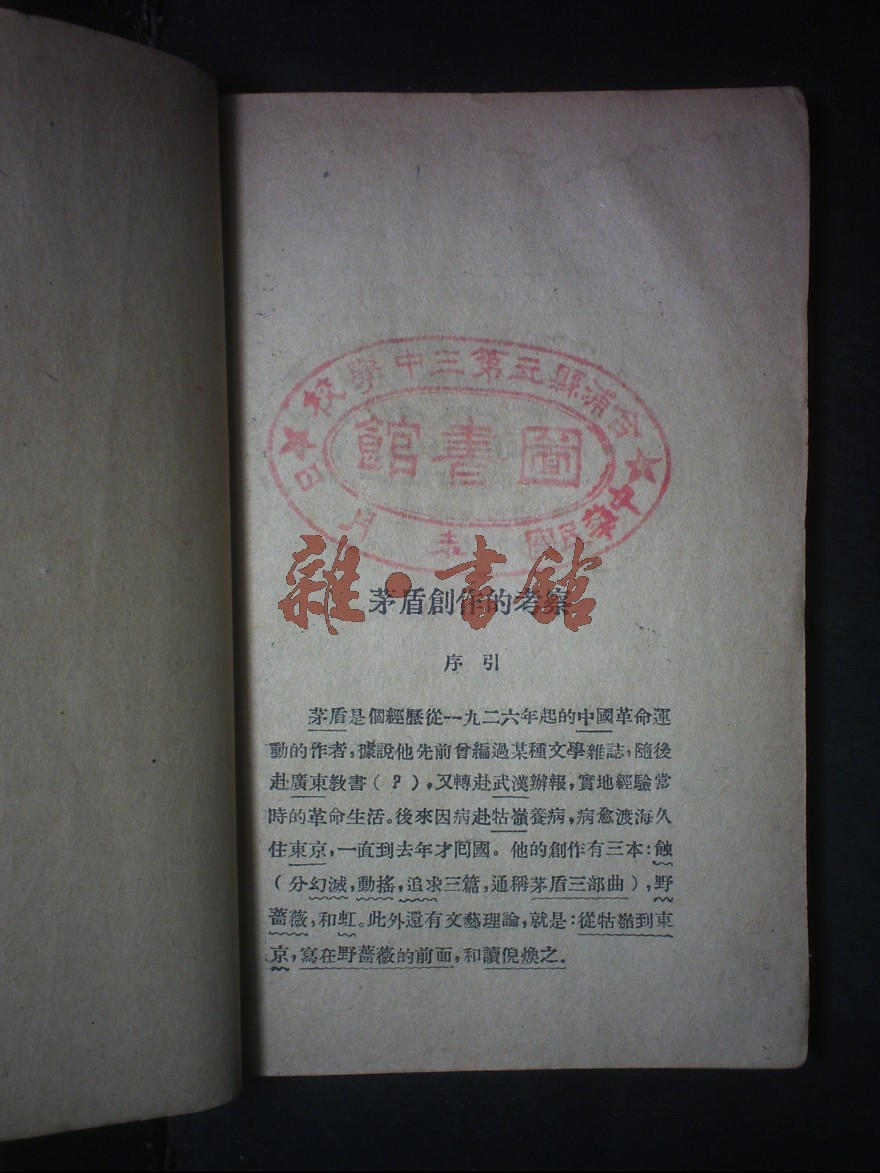 合浦縣立第三中學校
圖書館
中華民國 年 月 日
雜·書館
茅盾創作的考察
序引
茅盾是個經歷從一九二六年起的中國革命運
動的作者，據說他先前曾編過某種文學雜誌，隨後
赴廣東教書（？），又轉赴武漢辦報，實地經驗當
時的革命生活。後來因病赴牯嶺養病，病愈渡海久
住東京，一直到去年才回國。他的創作有三本：蝕
（分幻滅，動搖，追求三篇，通稱茅盾三部曲），野
薔薇，和虹。此外還有文藝理論，就是：從牯嶺到東
京，寫在野薔薇的前面，和讀倪煥之．